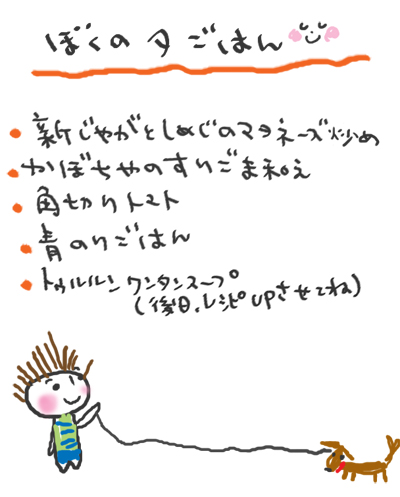 ぼくの夕ごはん
新じゃがとしめじのマヨネーズ炒め
かぼちゃのすりごま和え
角切りトマト
青のりごはん
トゥルルンワンタンスープ
(後日、レシピupさせてね)